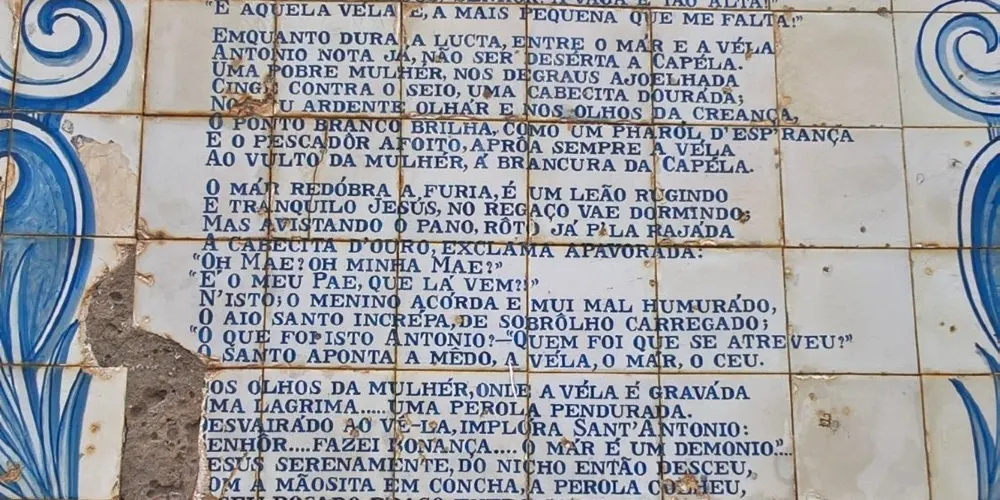 SENHOR. A VAGA É TÃO ALTA!"
"E AQUELA VELA E, A MAIS PEQUENA QUE ME FALTA!"
EMQUANTO DURA, A LUCTA, ENTRE O MAR E A VÉLA
ANTONIO NOTA JÁ, NÃO SER DESÉRTA A CAPÉLA.
UMA POBRE MULHÉR, NOS DEGRAUS AJOELHADA
CINGE CONTRA O SEIO, UMA CABECITA DOURÁDA;
NO SEU ARDENTE OLHÁR E NOS OLHOS DA CREANÇA,
O PONTO BRANCO BRILHA, COMO UM PHARÓL D'ESP'RANÇA
E O PESCADÔR AFOITO, APRÔA SEMPRE A VÉLA
AO VULTO DA MULHÉR, Á BRANCURA DA CAPÉLA.
O MÁR REDÓBRA A FURIA, É UM LEÃO RUGINDO
E TRANQUILO JESÚS, NO REGAÇO VAE DORMINDO;
MAS AVISTANDO O PANO, RÔTO JÁ P'LA RAJÁDA
A CABECITA D'OURO, EXCLAMA APAVORADA:
"OH MAE? OH MINHA MAE?"
"É O MEU PAE, QUE LÁ VEM?!"
N'ISTO; O MENINO ACÓRDA E MUI MAL HUMURÁDO,
O AIO SANTO INCRÉPA, DE SOBRÔLHO CARREGADO;
"O QUE FOI ISTO ANTONIO?—"QUEM FOI QUE SE ATREVEU?"
O SANTO APONTA A MÊDO, A VÉLA, O MAR, O CEU.
OS OLHOS DA MULHÉR, ONDE A VÉLA É GRAVÁDA
MA LAGRIMA..... UMA PEROLA PENDURADA.
ESVAIRÁDO AO VÊ-LA, IMPLÓRA SANT'ANTONIO:
ENHÔR.... FAZEI BONANÇA.... O MÁR É UM DEMONIO"....
ESUS SERENAMENTE, DO NICHO ENTÃO DESCEU,
OM A MÃOSITA EM CONCHA, A PEROLA COLHEU,